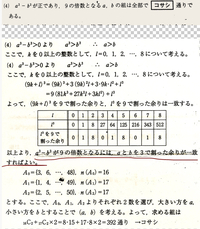 (4) a³−b³が正であり，9の倍数となるa，bの組は全部で コサシ 通りで
ある。
(4) a³−b³>0より a³>b³ ∴ a>b
ここで，kを0以上の整数として，l=0, 1, 2, …, 8について考える。
(4) a³−b³>0より a³>b³ ∴ a>b
ここで，kを0以上の整数として，l=0, 1, 2, …, 8について考える。
(9k+l)³=(9k)³+3(9k)²l+3·9k·l²+l³
=9(81k³+27k²l+3kl²)+l³
よって，(9k+l)³を9で割った余りと，l³を9で割った余りは一致する。
l 0 1 2 3 4 5 6 7 8
l³ 0 1 8 27 64 125 216 343 512
l³を9で割った余り 0 1 8 0 1 8 0 1 8
以上より，a³−b³が9の倍数となるには，aとbを3で割った余りが一致
すればよい。
A₀={3, 6, …, 48}, n(A₀)=16
A₁={1, 4, …, 49}, n(A₁)=17
A₂={2, 5, …, 50}, n(A₂)=17
とする。ここで，A₀，A₁，A₂よりそれぞれ2数を選び，大きい方をa，
小さい方をbとすることで(a, b)を考える。よって，求める組は
₁₆C₂+₁₇C₂×2=8·15+17·8×2=392 通り →コサシ